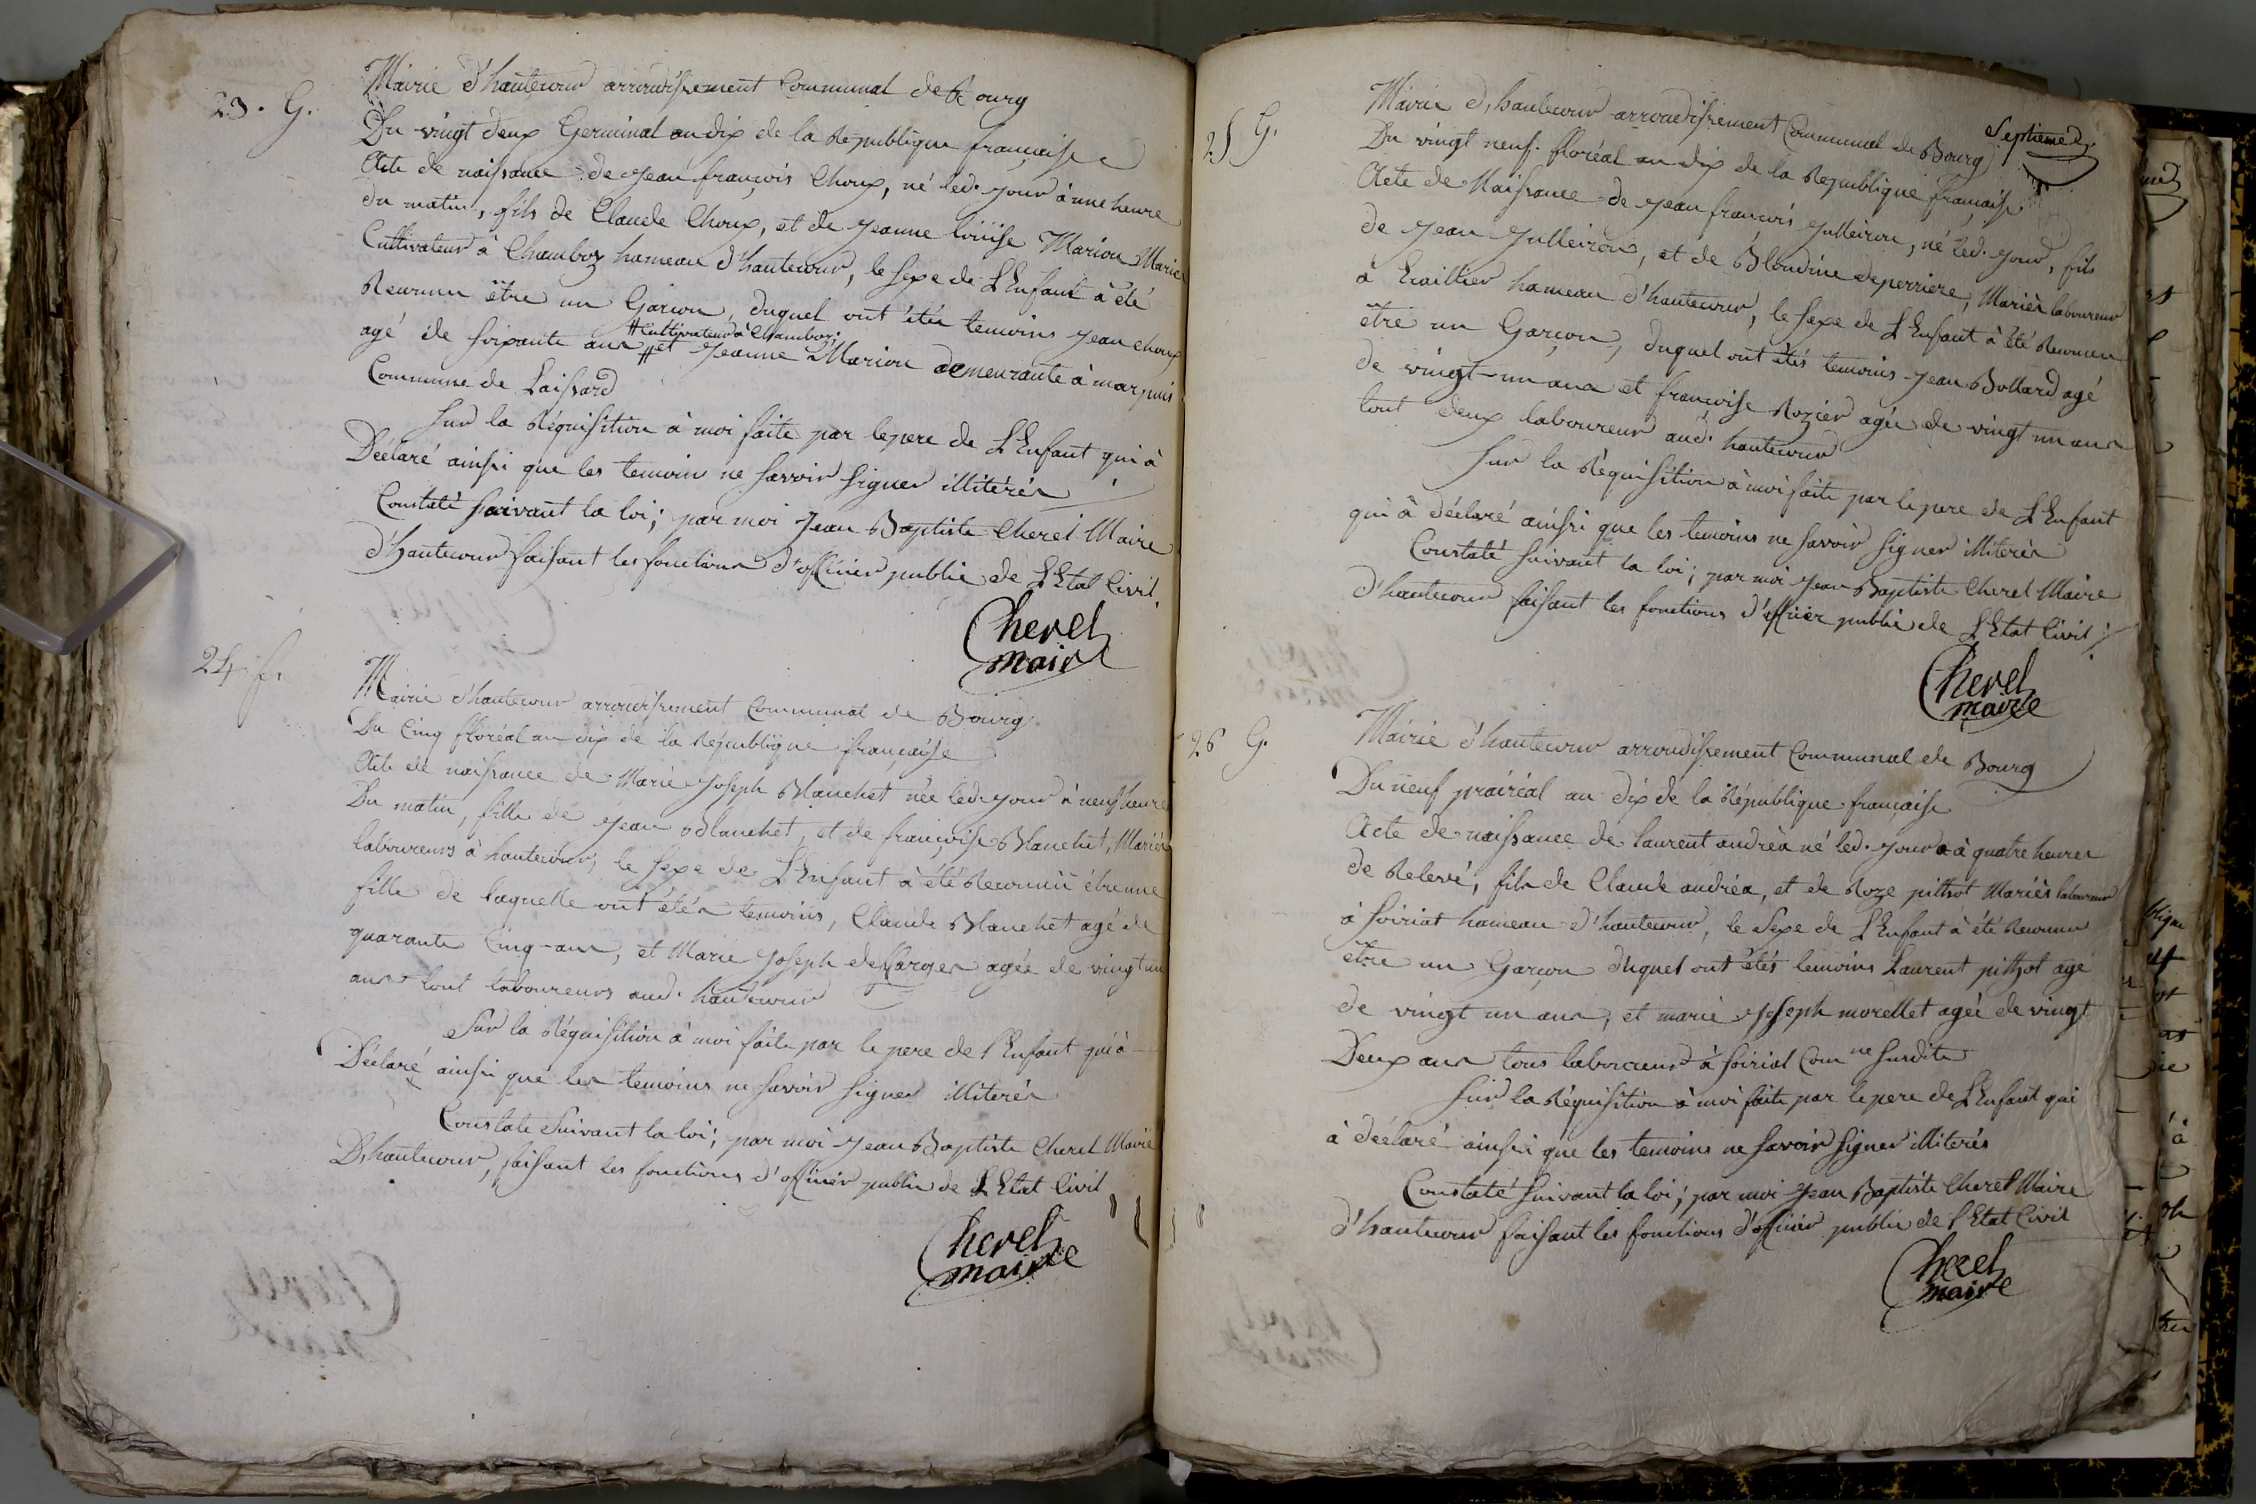 23. G.
Mairie d'hautecour arrondissement Communal de Bourg
Du vingt deux Germinal an dix de la Republique française
Acte de naissance de Jean françois Choux, né led. jour à une heure
du matin, fils de Claude Choux, et de Jeanne louïse Marion Mariés
Cultivateur à Chamboz hameau d'hautecour, le sexe de L'Enfant à été
Reconnu être un Garcon, duquel ont étés temoins Jean Choux
#Cultivateur à Chamboz;
agé de soixante ans # et Jeanne Marion demeurante à marpuis
Commune de Laissard
sur la Réquisition à moi faite par le pere de L'Enfant qui à
Déclaré ainsi que les temoins ne savoir signer illitérés
Constaté suivant la loi; par moi Jean Baptiste Cherel Maire
d'hautecour faisant les fonctions d'officier public de L'Etat Civil.
Cherel
maire
24 f.
Mairie d'hautecour arrondissement Communal de Bourg
Du Cinq floréal an dix de la République française
Acte de naissance de Marie Joseph Blanchet née led. jour à neuf heure
Du matin, fille de Jean Blanchet, et de françoise Blanchet, Mariés
laboureurs à hautecour, le sexe de L'Enfant à été Reconnu être une
fille de laquelle ont étés temoins, Claude Blanchet agé de
quarante Cinq ans, et Marie Joseph deffarges agée de vingt un
ans tout laboureurs aud. hautecour
Sur la Réquisition à moi faite par le pere de l'Enfant qui à
Déclaré ainsi que les temoins ne savoir signer illiterés
Constaté Suivant la loi; par moi Jean Baptiste Cherel Maire
D'hautecour, faisant les fonctions d'officier public de L'Etat Civil
Cherel
maire
Septieme
25 G.
Mairie d'hautecour arrondissement Communal de Bourg
Du vingt neuf floréal an dix de la Republique française
Acte de Naissance de Jean francois Julleiron, né led. jour, fils
de Jean Julleiron, et de Blondine deperriere, Mariés laboureur
à hameau d'hautecour, le sexe de L'Enfant à été Reconnu
être un Garçon, duquel ont étés temoins Jean Bollard agé
de vingt un ans et françoise Rozier agée de vingt un ans
tout deux laboureur aud. hautecour
sur la Réquisition à moi faite par le pere de L'Enfant
qui à déclaré ainsi que les temoins ne savoir signer illiterés
Constaté suivant la loi; par moi Jean Baptiste Cherel Maire
d'hautecour faisant les fonctions d'officier public de L'Etat Civil
Cherel
maire
26 G.
Mairie d'hautecour arrondissement Communal de Bourg
Du neuf prairéal an dix de la République française
Acte de naissance de laurent andréa né led. jour à quatre heures
de Relevé, fils de Claude andréa, et de Roze pithot Mariés laboureur
à soiriat hameau d'hautecour, le Sexe de L'Enfant à été Reconnu
être un Garçon duquel ont étés temoins Laurent pithot agé
de vingt un ans, et marie Joseph morellet agée de vingt
Deux ans tous laboureurs à soiriat Com ne susdite
sur la Réquisition à moi faite par le pere de L'Enfant qui
à déclaré ainsi que les temoins ne savoir signer illiterés
Constaté suivant la loi; par moi Jean Baptiste Cherel Maire
d'hautecour faisant les fonctions d'officier public de l'Etat Civil
Cherel
maire